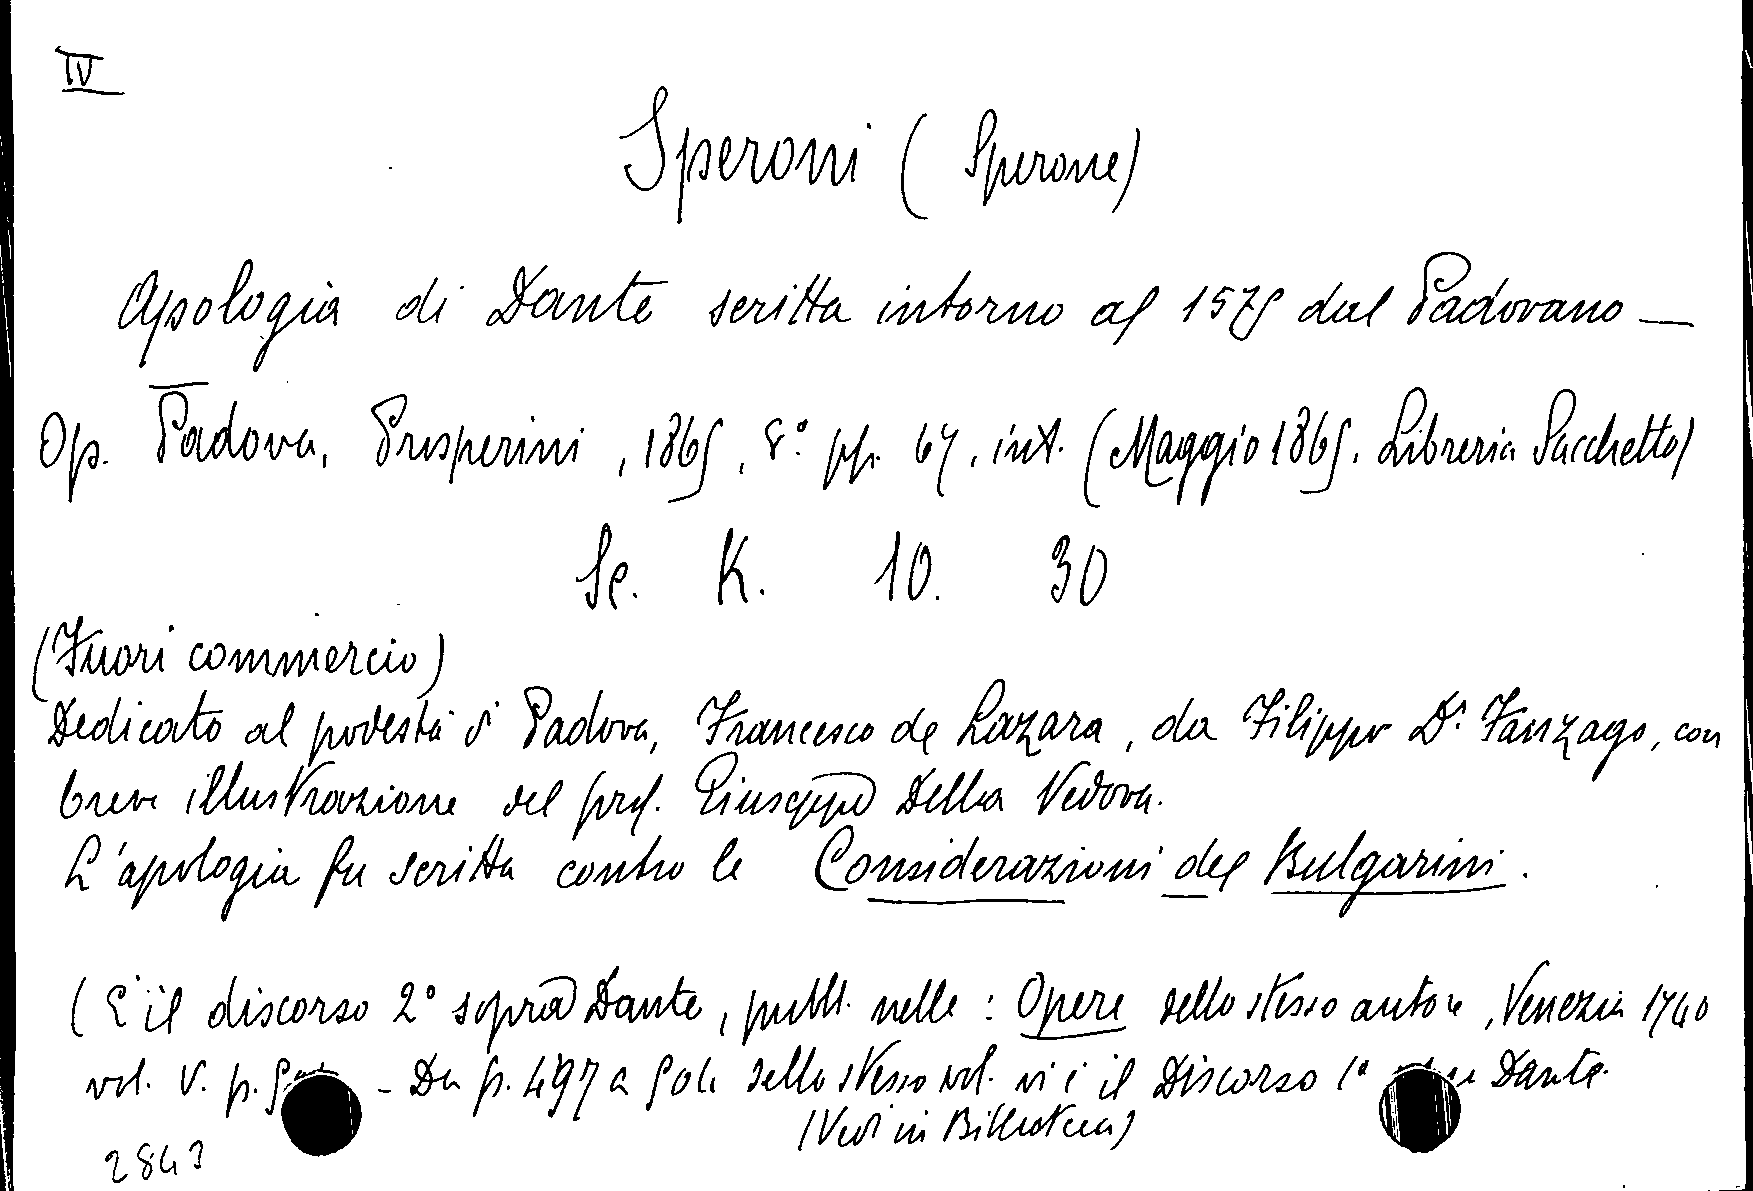 IV
Speroni (Sperone)
Apologia di Dante scritta intorno al 1575 dal Padovano —
Op. Padova, Prosperini, 1865, 8° pp. 67, int. (Maggio 1865. Libreria Sacchetto)
Sc. K. 10. 30
(Fuori commercio)
Dedicato al podestà di Padova, Francesco de Lazara, da Filippo Dr. Fanzago, con
breve illustrazione del prof. Giuseppe Della Vedova.
L'apologia fu scritta contro le Considerazioni del Bulgarini.
(È il discorso 2° sopra Dante, pubbl. nelle: Opere dello stesso autore, Venezia 1740
vol. V. p. – Da p. 497 a 504 dello stesso vol. vi è il Discorso 1° Dante.
(Vedi in Biblioteca)
2843